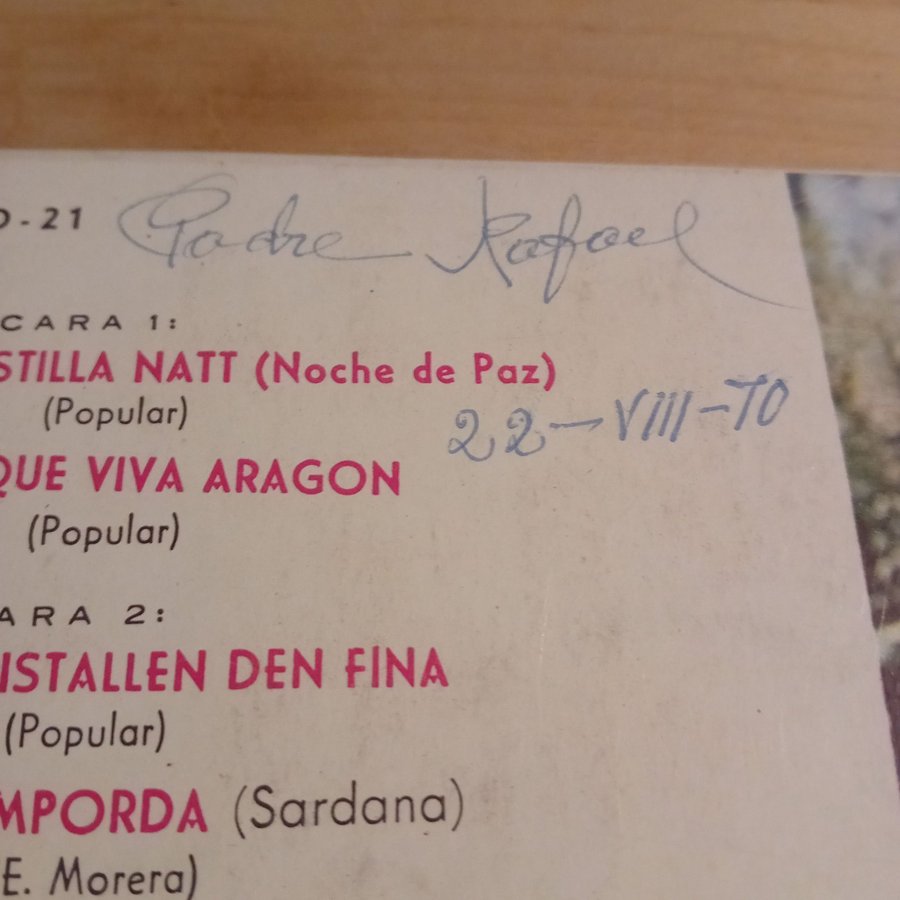 O-21 Padre Rafael
CARA 1:
STILLA NATT (Noche de Paz)
(Popular)
22-VIII-70
QUE VIVA ARAGON
(Popular)
ARA 2:
ISTALLEN DEN FINA
(Popular)
MPORDA (Sardana)
E. Morera)